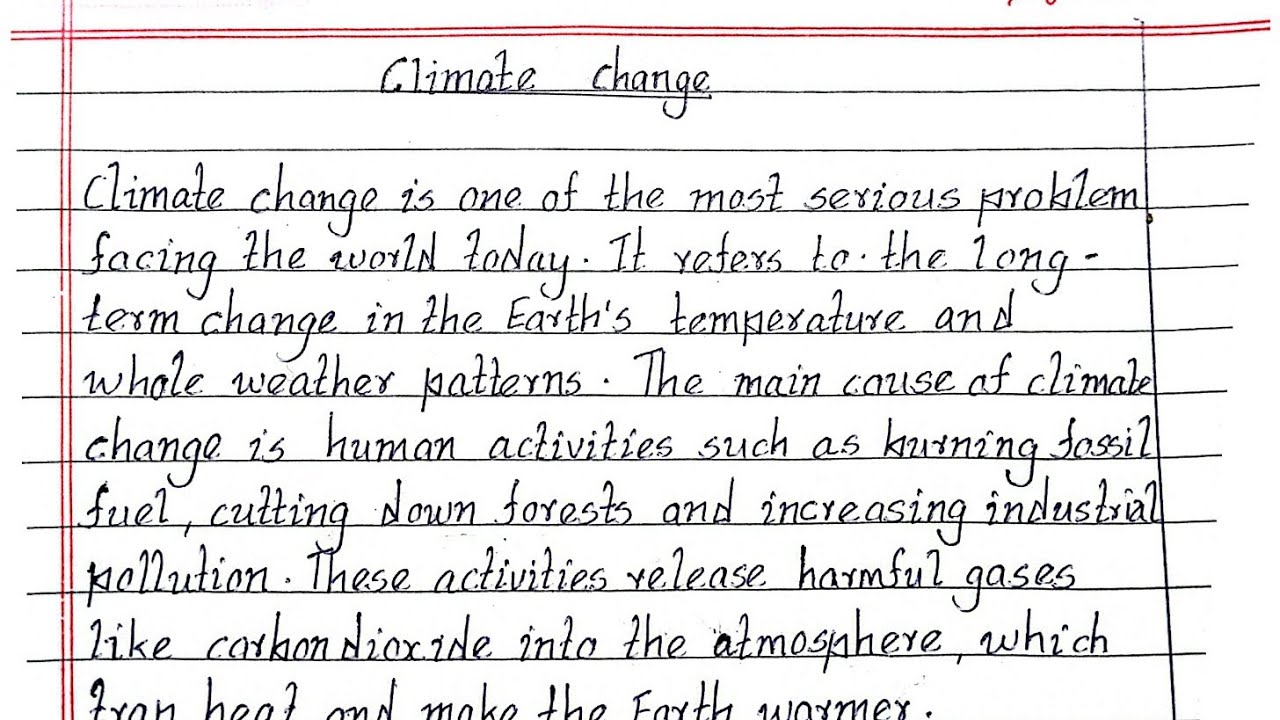 Climate change
Climate change is one of the most serious problem
facing the world today. It refers to. the long-
term change in the Earth's temperature and
whole weather patterns. The main cause of climate
change is human activities such as burning fossil
fuel, cutting down forests and increasing industrial
pollution. These activities release harmful gases
like carbondioxide into the atmosphere, which
trap heat and make the Earth warmer.